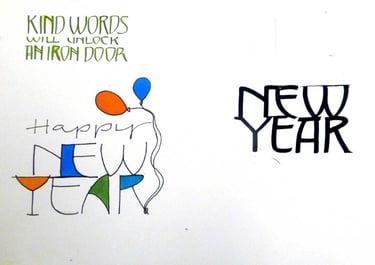 KIND WORDS
WILL UNLOCK
AN IRON DOOR
Happy
NEW
YEAR
NEW
YEAR